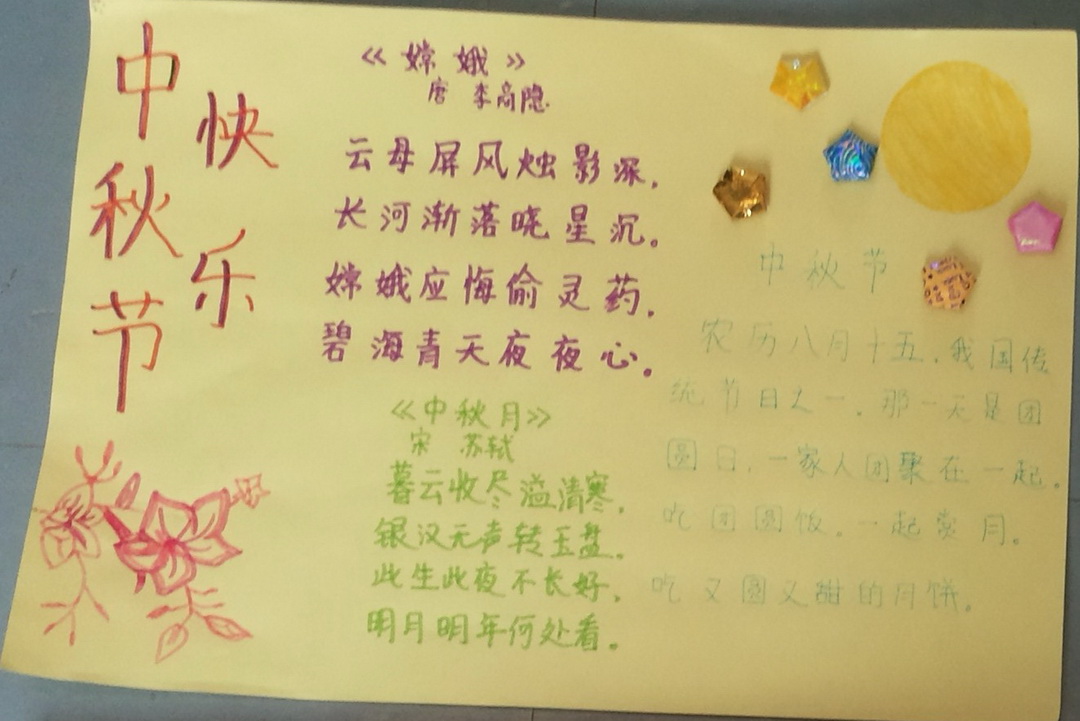 中秋节
快乐
《嫦娥》
唐 李商隐
云母屏风烛影深,
长河渐落晓星沉。
嫦娥应悔偷灵药,
碧海青天夜夜心。
《中秋月》
宋 苏轼
暮云收尽溢清寒,
银汉无声转玉盘。
此生此夜不长好,
明月明年何处看。
中秋节
农历八月十五,我国传
统节日之一,那一天是团
圆日,一家人团聚在一起。
吃团圆饭,一起赏月。
吃又圆又甜的月饼。